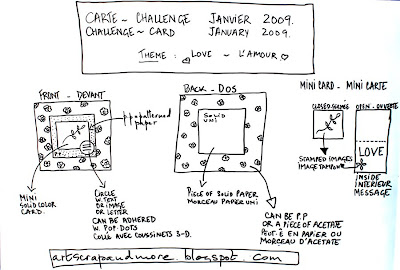 CARTE ~ CHALLENGE JANVIER 2009.
CHALLENGE ~ CARD JANUARY 2009.
THEME : LOVE ~ L'AMOUR
FRONT - DEVANT
p.p = patterned paper
P.P.
MINI SOLID COLOR CARD.
CIRCLE
W. TEXT
OR IMAGE
OR LETTER
CAN BE ADHERED
W. POP-DOTS
COLLÉ AVEC COUSSINETS 3-D.
BACK - DOS
SOLID
UNI
PIECE OF SOLID PAPER
MORCEAU PAPIER UNI
CAN BE P.P
OR A PIECE OF ACETATE
PEUT-Ê EN PAPIER OU
MORCEAU D'ACETATE
MINI CARD - MINI CARTE
CLOSED-FERMÉE
OPEN - OUVERTE
LOVE
STAMPED IMAGES
IMAGE TAMPONNÉ
INSIDE
INTERIEUR
MESSAGE
artscrapandmore.blogspot.com